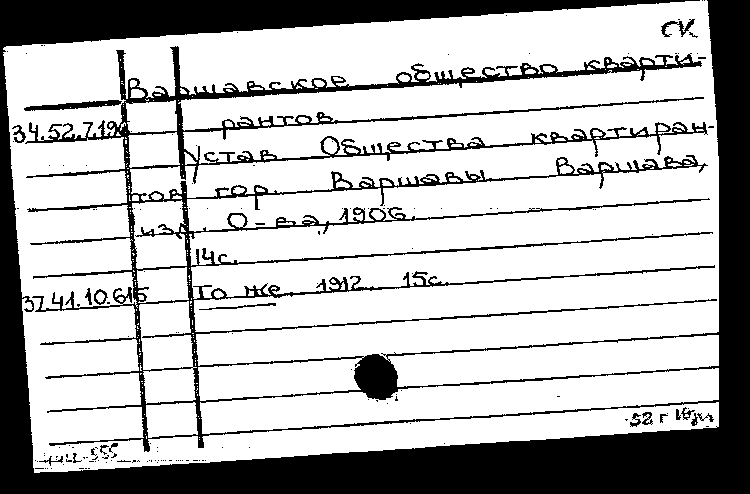 СК
Варшавское общество кварти-
34.52.7.196 рантов.
Устав Общества квартиран-
тов гор. Варшавы. Варшава,
изд. О-ва, 1906.
14с.
37.41.10.615 То же. 1912. 15с.
52 г